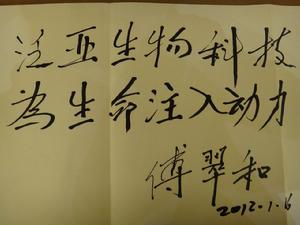 泛亚生物科技
為生命注入动力
傅翠和
2012.1.6